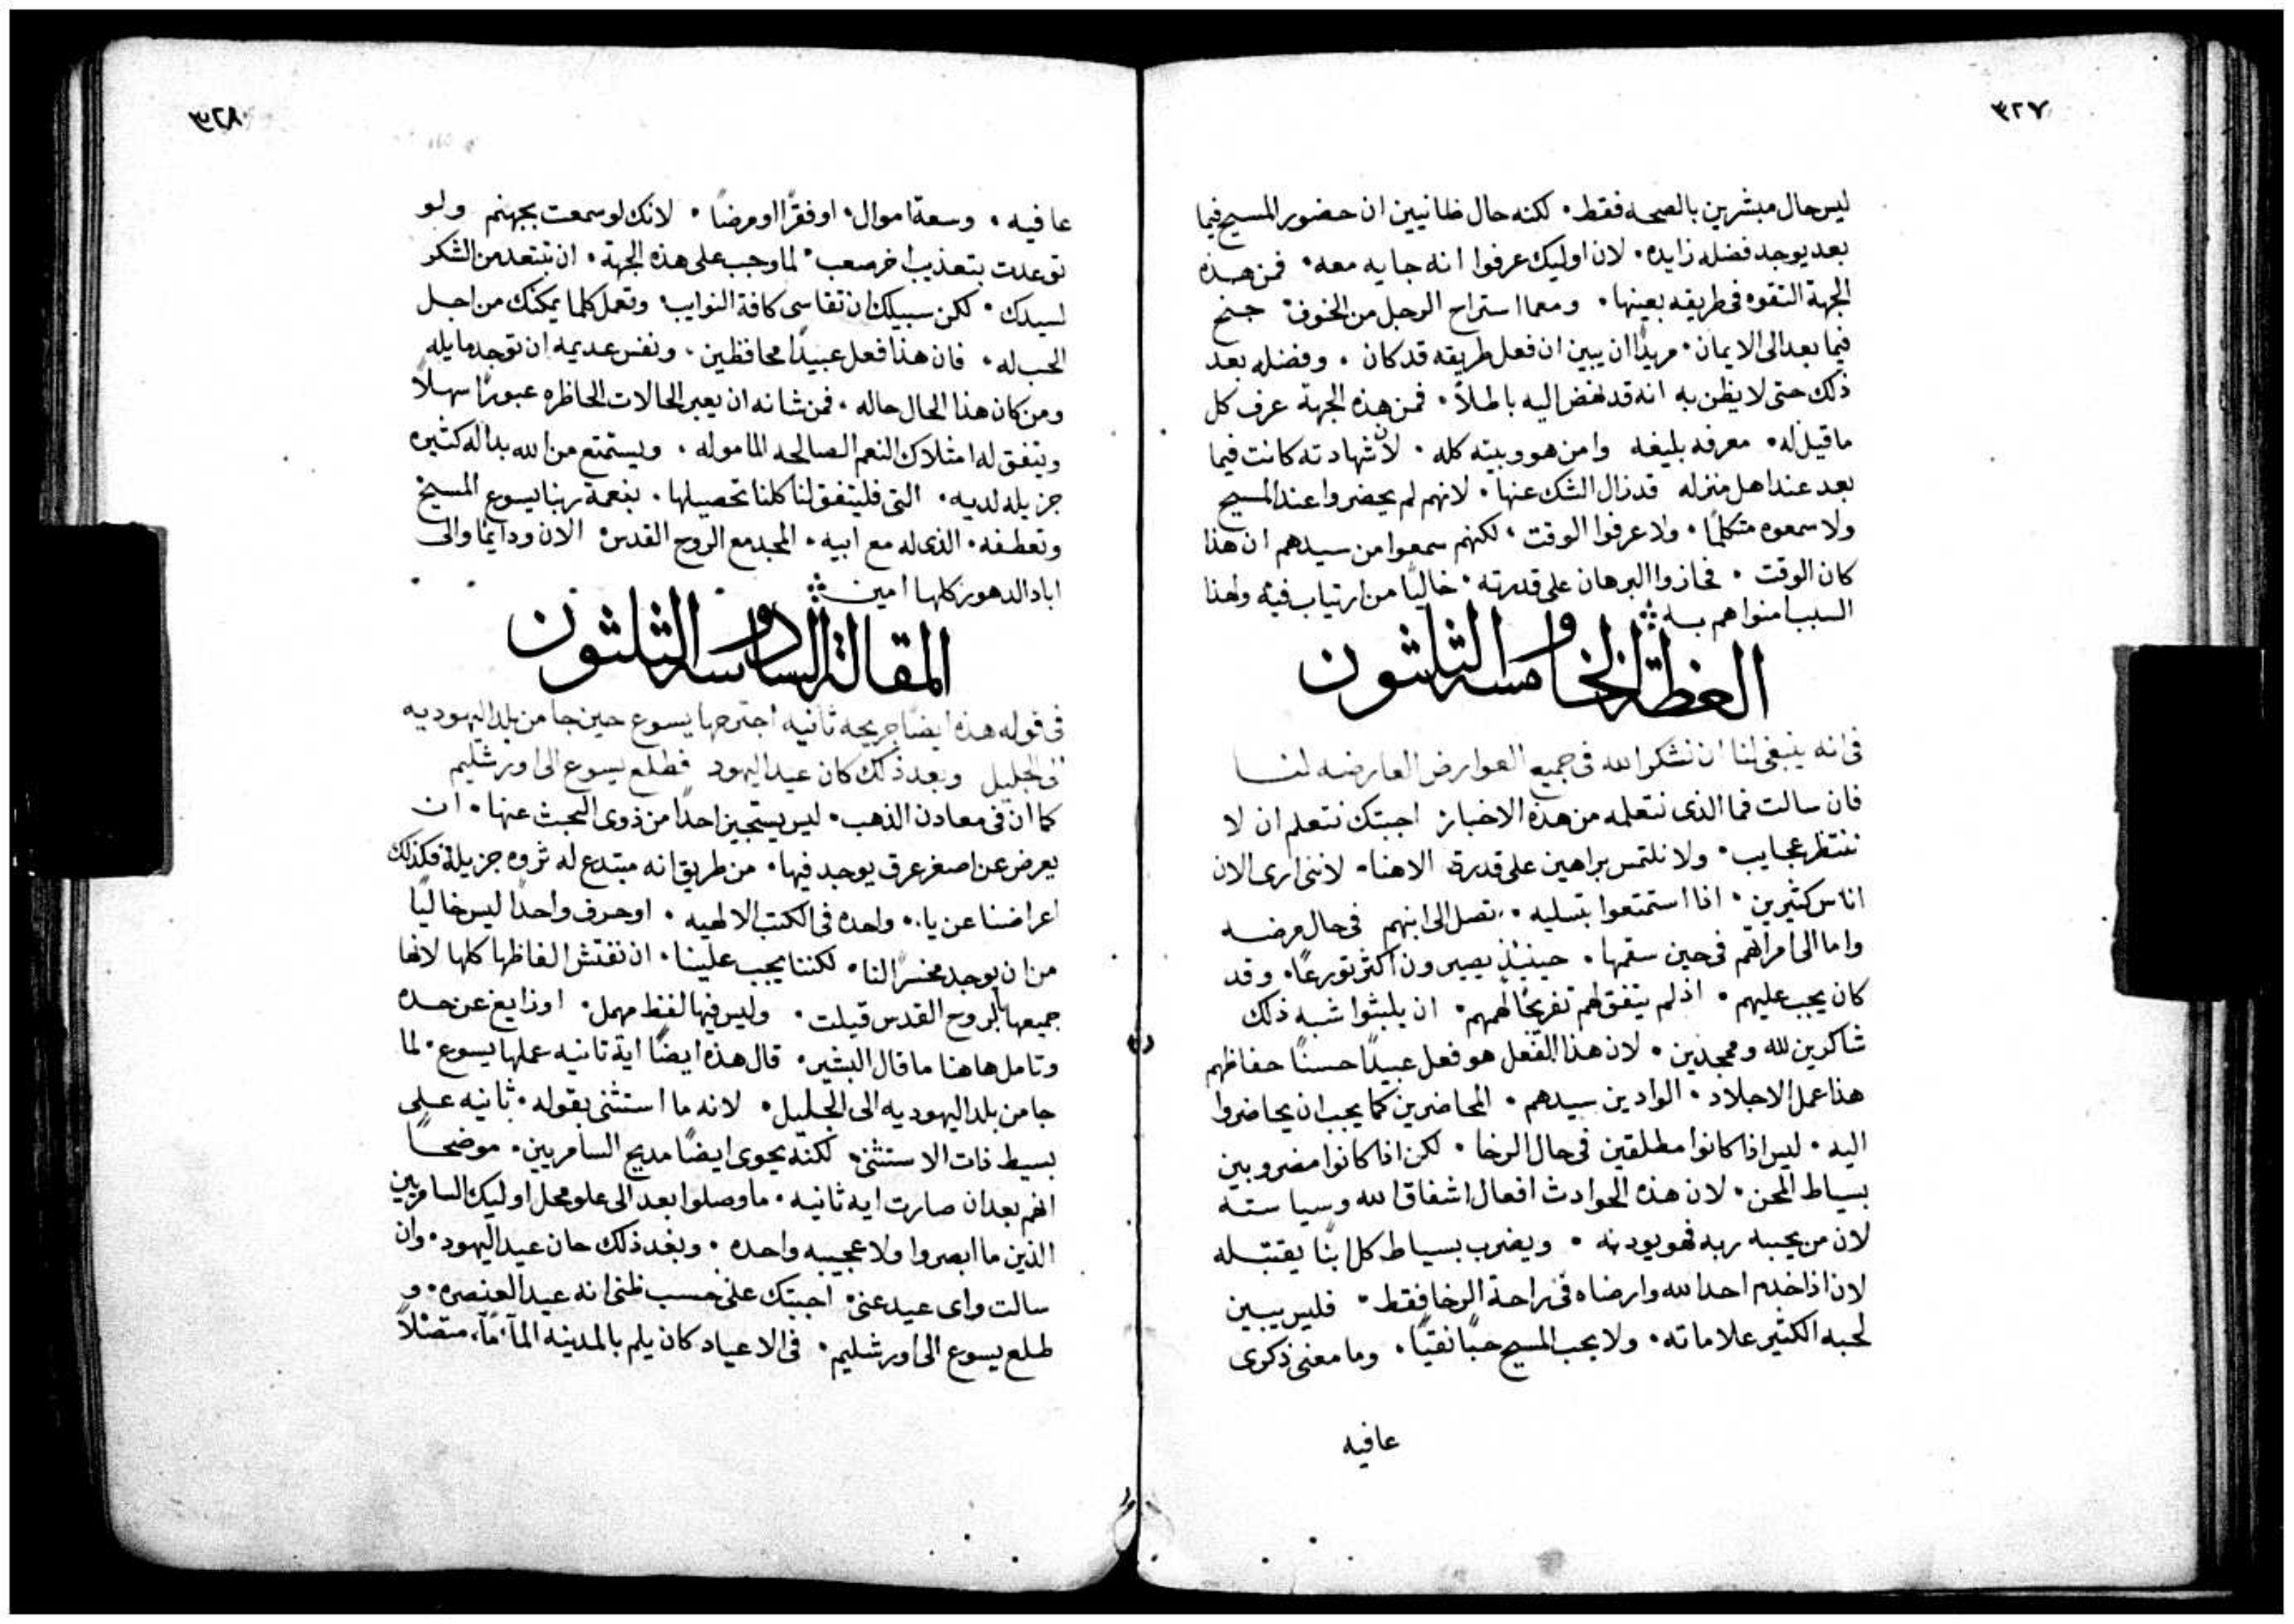 ٣٢٧
ليس حال مبشرين بالصحه فقط. لكنه حال ظانيين ان حضور المسيح فيما
بعد يوجد فضله زايده. لان اوليك عرفوا انه جا به معه. فمن هذه
الجهة التقوه في طريقه بعينها. ومما استراح الرجل من الخوف. جنح
فيما بعد الى الايمان. مريدًا ان يبين ان فعل طريقه قد كان. وفضله بعد
ذلك حتى لا يظن به انه قد نهض اليه باطلاً. فمن هذه الجهة عرف كل
ما قيل له. معرفه بليغه وامن هو وبيته كله. لان شهادته كانت فيما
بعد عند اهل منزله قد زال الشك عنها. لانهم لم يحضروا عند المسيح
ولا سمعوه متكلمًا. ولا عرفوا الوقت. لكنهم سمعوا من سيدهم ان هذا
كان الوقت. فحازوا البرهان على قدرته. خاليًا من ارتياب فيه ولهذا
السبب امنوا هم به
العظة الخامسه والثلثون
في انه ينبغي لنا ان نشكر الله في جميع العوارض العارضه لنا
فان سالت فما الذي نتعلمه من هذه الاخبار اجبتك نتعلم ان لا
ننتظر عجايب. ولا نلتمس براهين على قدرة الاهنا. لانني ارى الان
اناس كثيرين. اذا استمتعوا بتسليه. تصل الى ابنهم في حال مرضه
واما الى امراتهم في حين سقمها. حينيذٍ يصيرون اكثر تورعًا. وقد
كان يجب عليهم. اذ لم يتفق لهم تفريجًا لهمهم. ان يلبثوا شبه ذلك
شاكرين لله وممجدين. لان هذا الفعل هو فعل عبيدًا حسنًا حفاظهم
هذا عمل الاجلاد. الوادين سيدهم. المحاضرين كما يجب ان يحاضروا
اليه. ليس اذا كانوا مطلقين في حال الرخا. لكن اذا كانوا مضروبين
بسياط المحن. لان هذه الحوادث افعال اشفاق الله وسياسته
لان من يحببه ربه فهو يودبه. ويضرب بسياط كل ابنًا يقتبله
لان اذا خدم احد الله وارضاه في راحة الرخا فقط. فليس يبين
لحبه الكثير علاماته. ولا يحب المسيح حبًا نقيًا. وما معنى ذكرى
عافيه
٣٢٨
عافيه. وسعة اموال. او فقرًا او مرضًا. لانك لو سمعت بجهنم ولو
توعدت بتعذيب اخر صعب. لما وجب على هذه الجهة. ان تبتعد من الشكر
لسيدك. لكن سبيلك ان تقاسى كافة النوايب. وتعمل كلما يمكنك من اجل
الحب له. فان هذا فعل عبيدًا محافظين. ونفس عديمه ان توجد مايله
ومن كان هذا الحال حاله. فمن شانه ان يعبر الحالات الحاظره عبورًا سهلاً
ويتفق له امتلاك النعم الصالحه الماموله. ويستمتع من الله بداله كثيره
جزيله لديه. التي فليتفق لنا كلنا تحصيلها. بنعمة ربنا يسوع المسيح
وتعطفه. الذى له مع ابيه. المجد مع الروح القدس الان ودايمًا والى
اباد الدهور كلها امين
المقالة السادسه والثلثون
في قوله هذه ايضًا جريحه ثانيه اجترحها يسوع حين جا من بلد اليهوديه
الى الجليل وبعد ذلك كان عيد اليهود فطلع يسوع الى اورشليم
كما ان في معادن الذهب. ليس يستجيز احدًا من ذوى البحث عنها. ان
يعرض عن اصغر عرق يوجد فيها. من طريق انه مبتدع له ثروه جزيلة فكذلك
اعراضنا عن ياء واحده في الكتب الالهيه. او حرف واحدًا ليس خاليًا
من ان يوجد مخسرًا لنا. لكننا يجب علينا. ان نفتش الفاظها كلها لانها
جميعها بالروح القدس قيلت. وليس فيها لفظ مهمل. او زايغ عن حده
وتامل هاهنا ما قال البشير. قال هذه ايضًا اية ثانيه عملها يسوع. لما
جا من بلد اليهوديه الى الجليل. لانه ما استثنى بقوله. ثانيه على
بسيط ذات الاستثنى. لكنه يحوى ايضًا مديح السامريين. موضحًا
انهم بعد ان صارت ايه ثانيه. ما وصلوا بعد الى علو محل اوليك السامريين
الذين ما ابصروا ولا عجيبه واحده. وبعد ذلك حان عيد اليهود. وان
سالت واى عيد عنى. اجبتك على حسب ظنى انه عيد العنصره. و
طلع يسوع الى اورشليم. في الاعياد كان يلم بالمدينة متصلاً